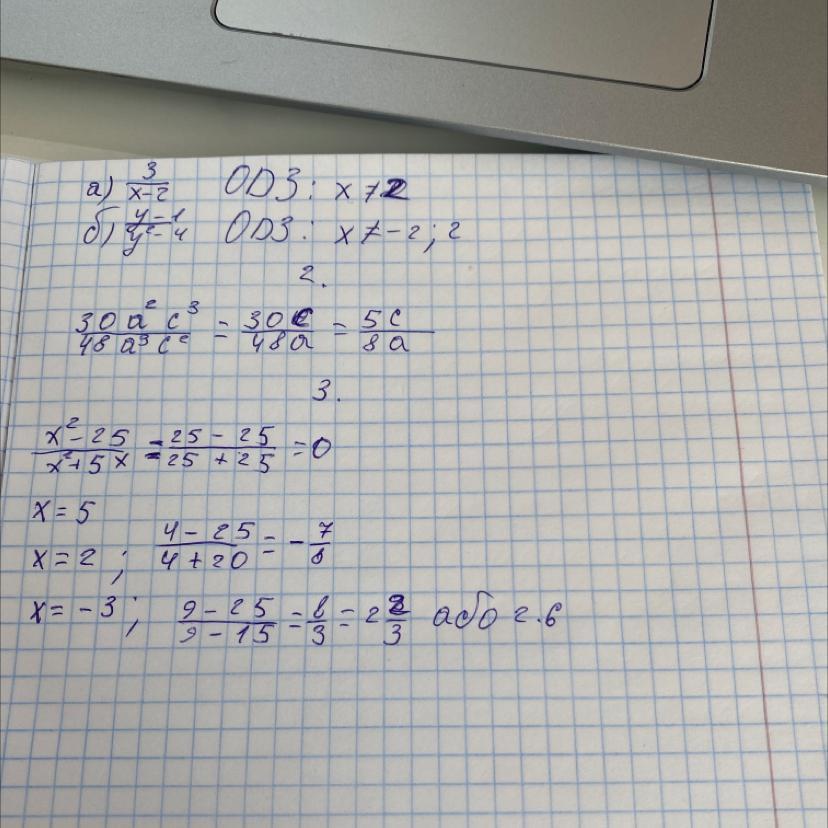 а) 3/(x-2) ОДЗ: x ≠ 2
б) (y-1)/(y²-4) ОДЗ: x ≠ -2; 2
2.
30a²c³/48a³c² = 30c/48a = 5c/8a
3.
(x²-25)/(x²+5x) = (25-25)/(25+25) = 0
x = 5
x = 2; (4-25)/(4+20) = -7/8
x = -3; (9-25)/(9-15) = 8/3 = 2 2/3 або 2.6